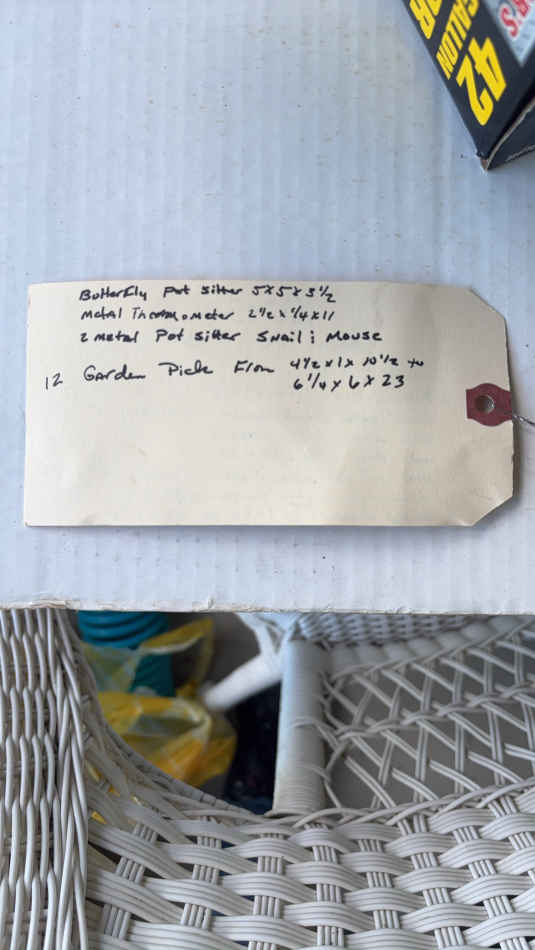 42
GALLON
Butterfly Pot sitter 5x5x3 1/2
Metal Thermometer 2 1/2 x 1/4 x 11
2 metal Pot sitter Snail & Mouse
12 Garden Pick From 4 1/2 x 1 x 10 1/2 to
6 1/4 x 6 x 23